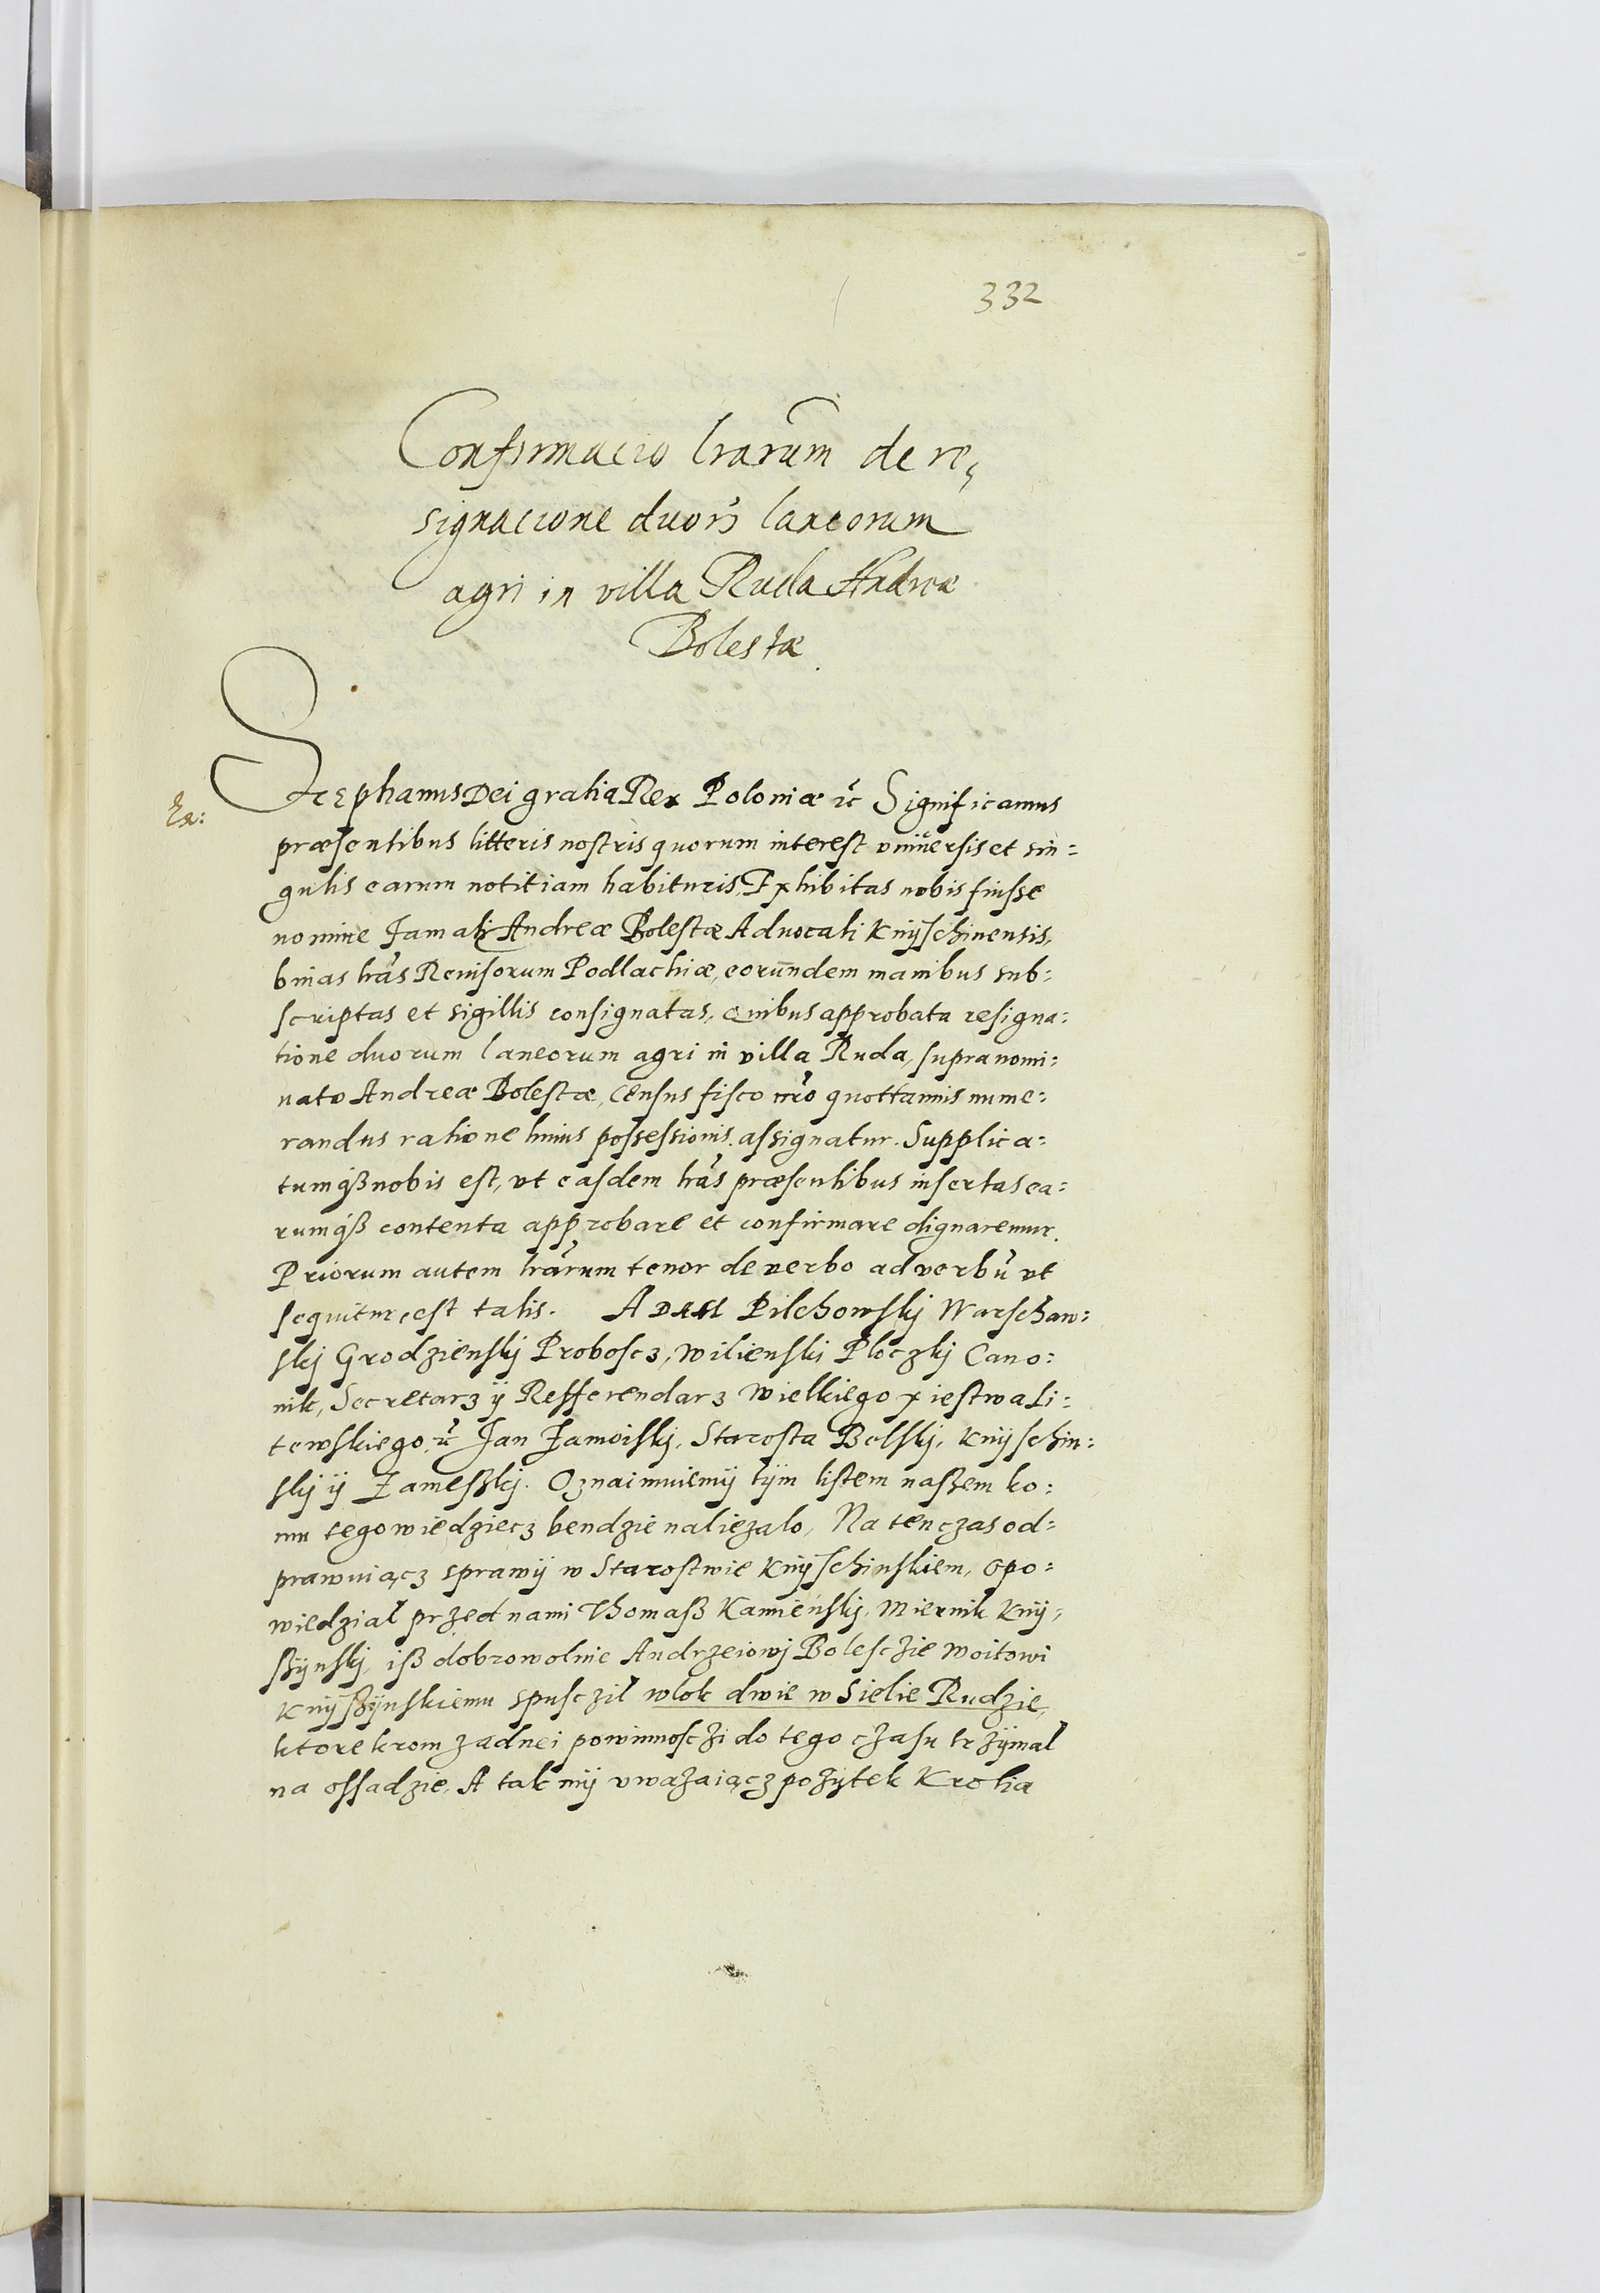 332
Confirmacio lrarum de re,
signacione duoru laneorum
agri in villa Ruda Andreæ
Bolestæ
Ex:
Stephanus Dei gratia Rex Poloniæ etc Significamus
præsentibus litteris nostris quorum interest vniuersis et sin=
gulis earum notitiam habituris, Exhibitas nobis fuisse
nomine famati Andreæ Bolestæ Aduocati Knÿschinensis,
binas lras Reuisorum Podlachiæ, eorundem manibus sub=
scriptas et sigillis consignatas, quibus approbata resigna=
tione duorum laneorum agri in villa Ruda, supra nomi=
nato Andreæ Bolestæ, census fisco nro quottannis nume=
randus ratione huius possessionis assignatur. Supplica=
tumqß nobis est, vt easdem lras præsentibus insertas ea=
rumqß contenta approbare et confirmare dignaremur.
Priorum autem lrarum tenor de verbo ad verbu vt
sequitur, est talis. Adam Pilchowskj Warschaw=
skj Grodzienskj Proboscz, Wilienski Ploczkj Cano=
nik, Secretarz ÿ Refferendarz Wielkiego Xiestwa Li=
tewskiego, etc Jan Zamoiskj, Starosta Belskj, Knÿschin=
skj ÿ Zameßkj. Oznaimuiemÿ tÿm listem naßem ko=
mu tego wiedziecz bendzie naliezalo, Na ten czas od=
prawuiącz sprawÿ w Starostwie Knÿschinskiem, opo=
wiedział przed nami Thomaß Kamieńskj, Miernik Knÿ=
ßÿnskj, iß dobrowolnie Andrzeiowj Bolesczie Woitowi
Knÿßÿnskiemu spuscził wlok dwie w Sielie Rudzie,
ktore krom zadnei powinnosczi do tego czasu trzÿmał
na ossadzie, A tak mÿ vwazaiącz pozÿtek Krolia